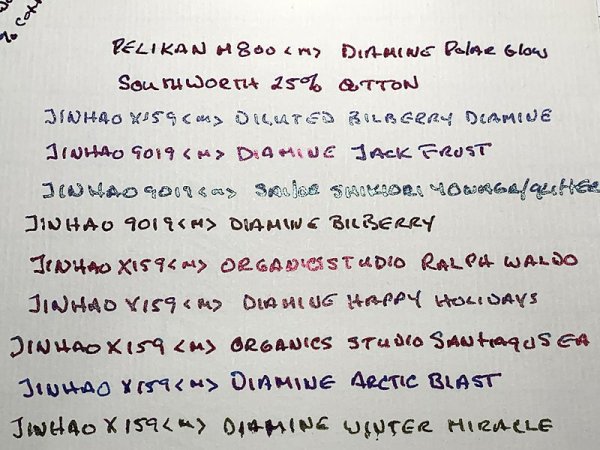 PELIKAN M800 <M> DIAMINE POLAR GLOW
SOUTHWORTH 25% COTTON
JINHAO X159 <M> DILUTED BILBERRY DIAMINE
JINHAO 9019 <M> DIAMINE JACK FROST
JINHAO 9019 <M> SAILOR SHIKIORI YONAGA/GLITTER
JINHAO 9019 <M> DIAMINE BILBERRY
JINHAO X159 <M> ORGANICS STUDIO RALPH WALDO
JINHAO X159 <M> DIAMINE HAPPY HOLIDAYS
JINHAO X159 <M> ORGANICS STUDIO SANTIAGO SEA
JINHAO X159 <M> DIAMINE ARCTIC BLAST
JINHAO X159 <M> DIAMINE WINTER MIRACLE